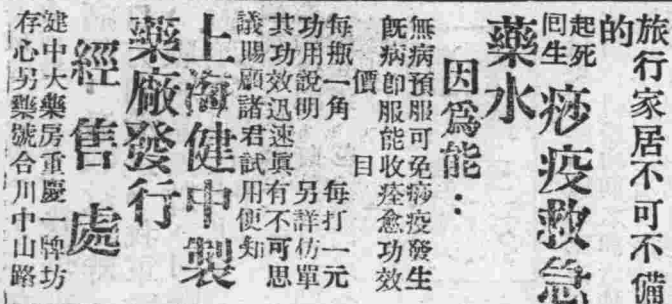 旅行家居不可不備
的
起死
囘生
痧疫救急
藥水
因爲能：
無病預服可免痧疫發生
旣病卽服能收痊愈功效
價目
每瓶一角 每打一元
功用說明 另詳仿單
其功效迅速眞有不可思
議賜顧諸君試用便知
上海健中製
藥廠發行
經售處
建中大藥房重慶一牌坊
存心另藥號合川中山路